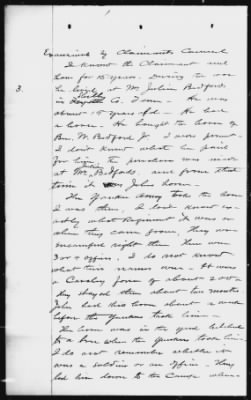 Examined by Claimants Counsel
I know the Claimant and
him for 15 years. During the war
3.
he lived at Mr Julien Bedfords
in Shelby Co. Tenn. He was
about 15 years old. He had
a horse. He bought the horse of
Ben. W. Bedford Jr. I was present.
I don't know what he paid
for him, the purchase was made
at Mr. Bedfords, and from that
time it was Johns horse.
The Yankee Army took the horse
I was there, I dont know ex-
actly what Regiment it was or
where they came from, they were
encamped right there. There were
3 or 4 officers. I do not know
what their names were. It was
a Cavalry force of about 200.
They stayed there about two months
John had his horse about a week
before the Yankees took him.
The horse was in the yard hitched
to a tree when the Yankees took him.
I do not remember whether it
was a soldier or an officer. They
led him down to the Camp where